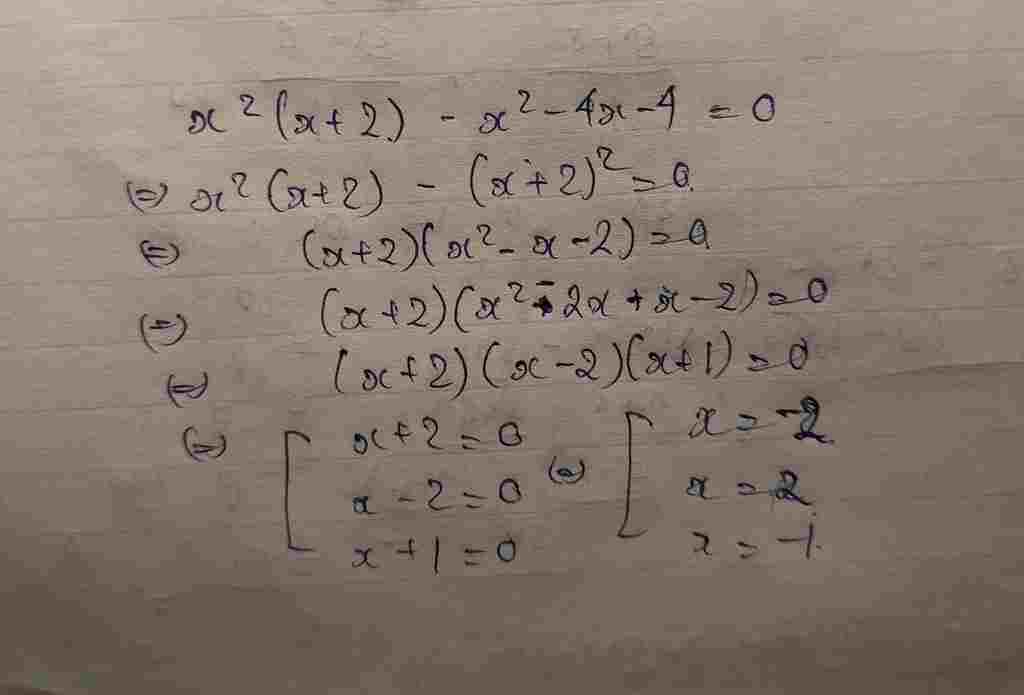 x²(x+2) - x² - 4x - 4 = 0
(=) x²(x+2) - (x+2)² = 0
(=) (x+2)(x² - x - 2) = 0
(=) (x+2)(x² - 2x + x - 2) = 0
(=) (x+2)(x-2)(x+1) = 0
(=) [ x+2 = 0 (=) [ x = -2
x - 2 = 0 x = 2
x + 1 = 0 x = -1